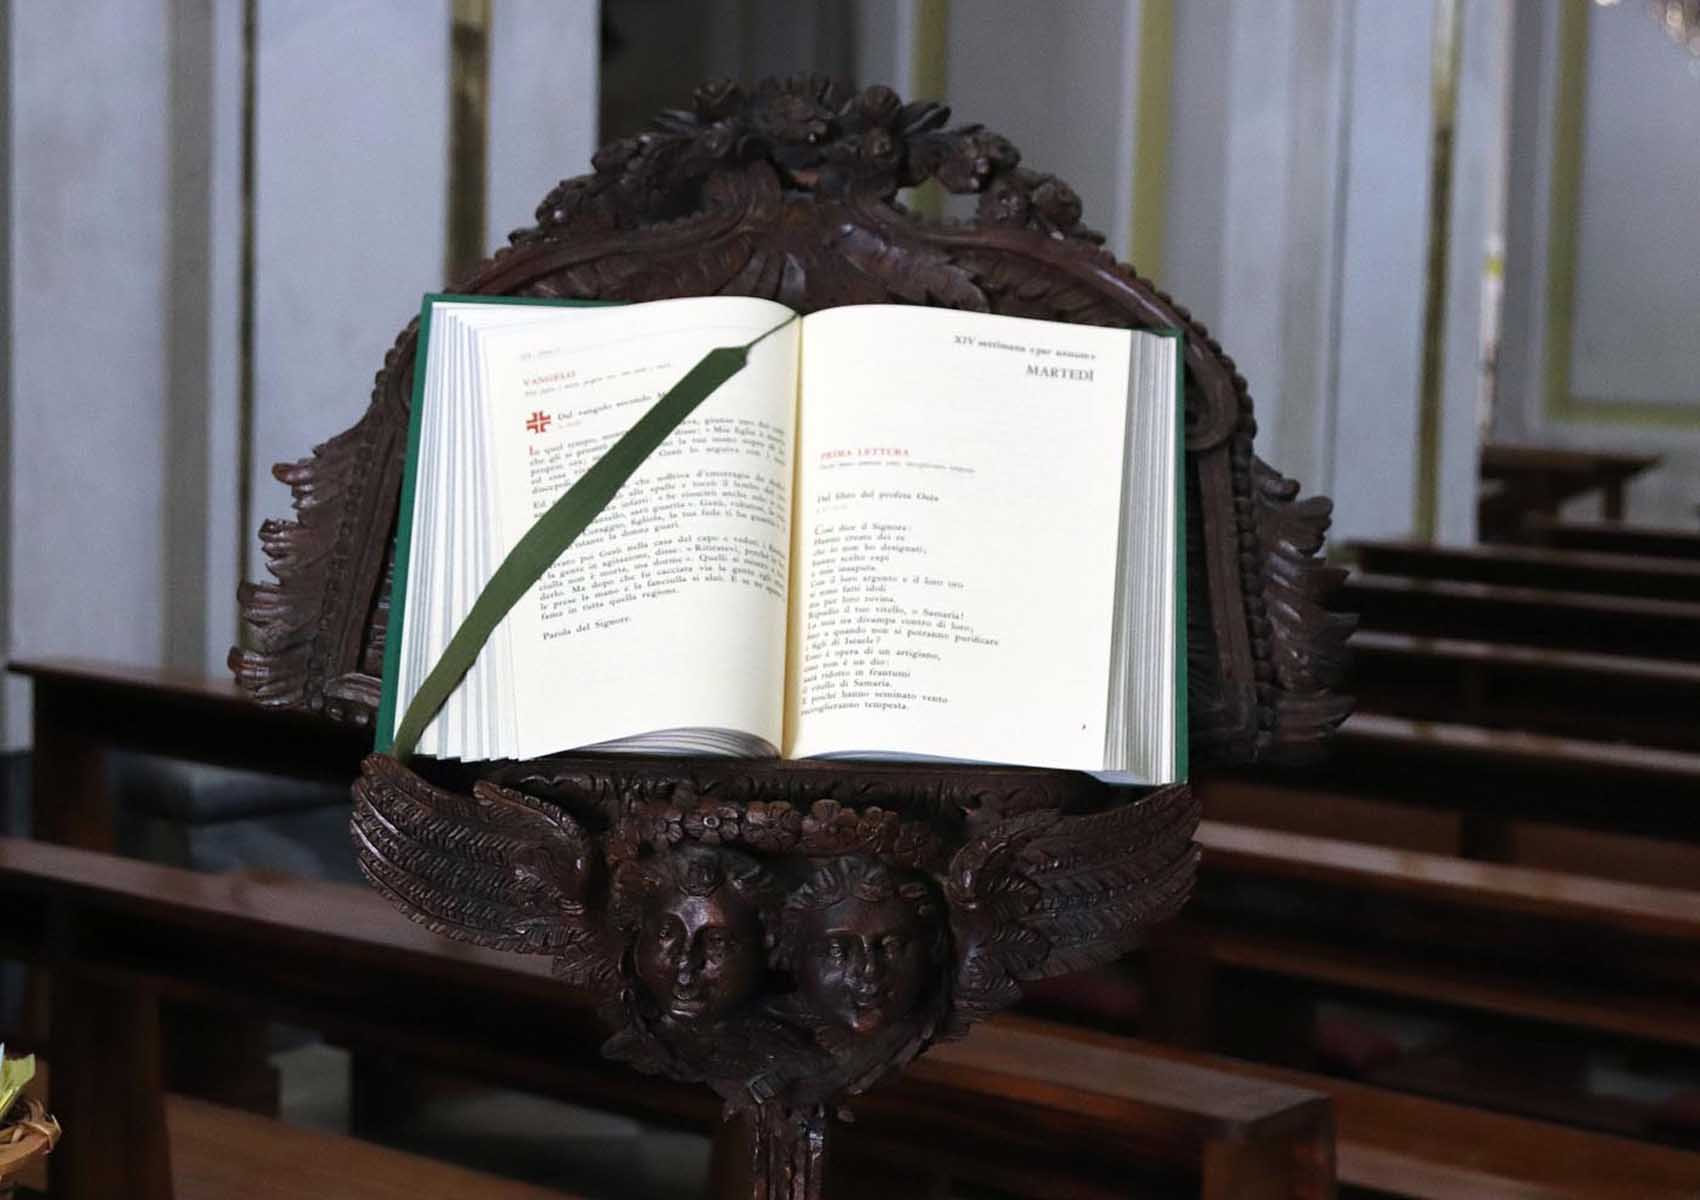 VANGELO
Dal vangelo secondo
In quel tempo,
che gli si disse: « Mia figlia è
la tua mano sopra di
Gesù lo seguiva con i
discepoli.
Ed che soffriva d'emorragia da
alle spalle e toccò il lembo del
infatti: « Se riuscirò anche solo a
mantello, sarò guarita ». Gesù, voltatosi, la
Coraggio, figliola, la tua fede ti ha
istante la donna guarì.
poi Gesù nella casa del capo e veduti i
la gente in agitazione, disse: « Ritiratevi, perché la
ciulla non è morta, ma dorme ». Quelli si misero a
derlo. Ma dopo che fu cacciata via la gente egli
le prese la mano e la fanciulla si alzò. E se ne sparse
fama in tutta quella regione.
Parola del Signore.
XIV settimana «per annum»
MARTEDÌ
PRIMA LETTURA
Dal libro del profeta Osèa
Così dice il Signore:
Hanno creato dei re
che io non ho designati;
hanno scelto capi
a mia insaputa.
Con il loro argento e il loro oro
si sono fatti idoli
ma per loro rovina.
Ripudio il tuo vitello, o Samaria!
La mia ira divampa contro di loro;
fino a quando non si potranno purificare
i figli di Israele?
Esso è opera di un artigiano,
esso non è un dio:
sarà ridotto in frantumi
il vitello di Samaria.
E poiché hanno seminato vento
raccoglieranno tempesta.